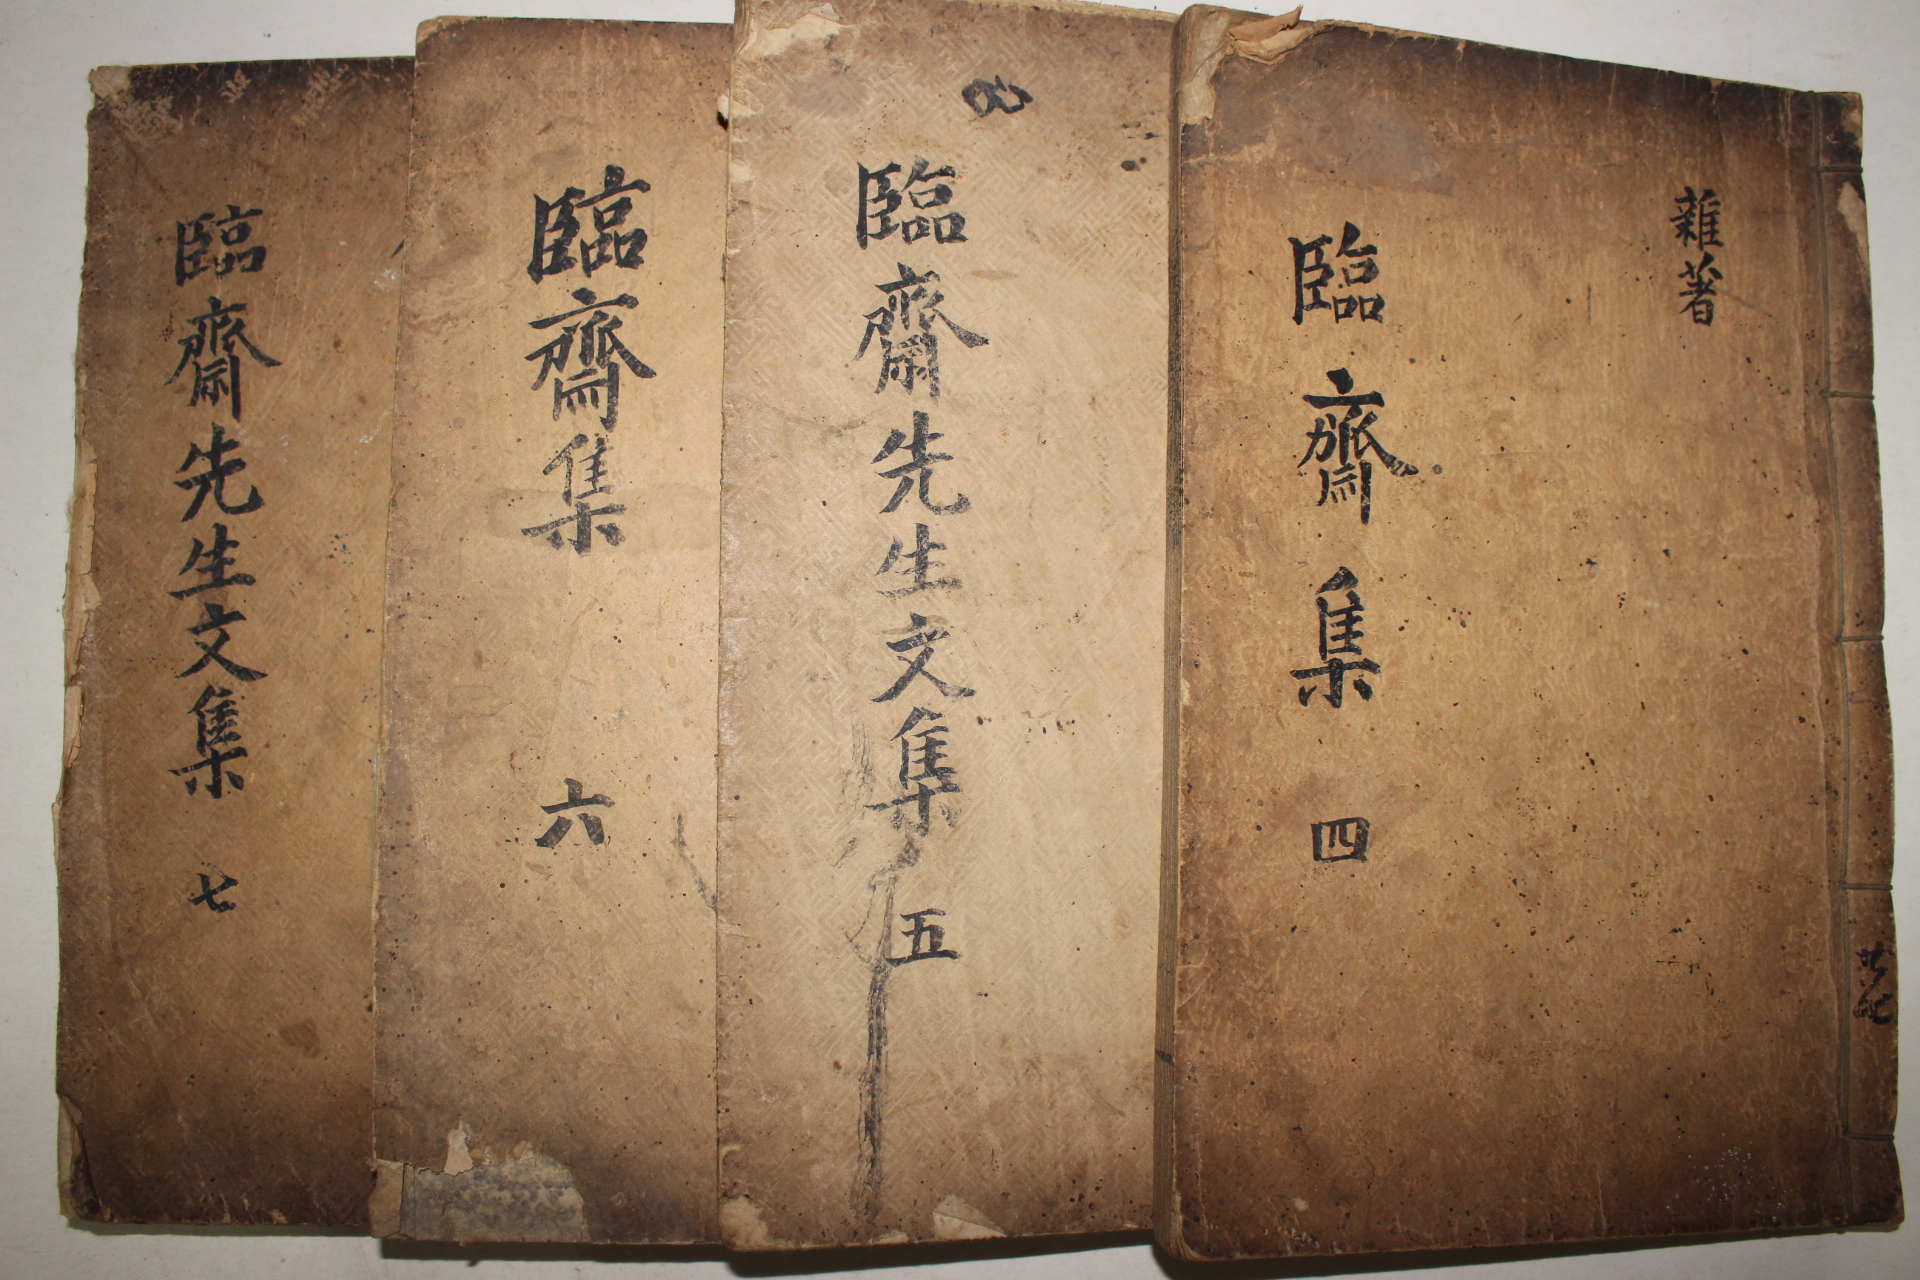 雜著
臨齋集 四
臨齋先生文集 五
臨齋集 六
臨齋先生文集 七